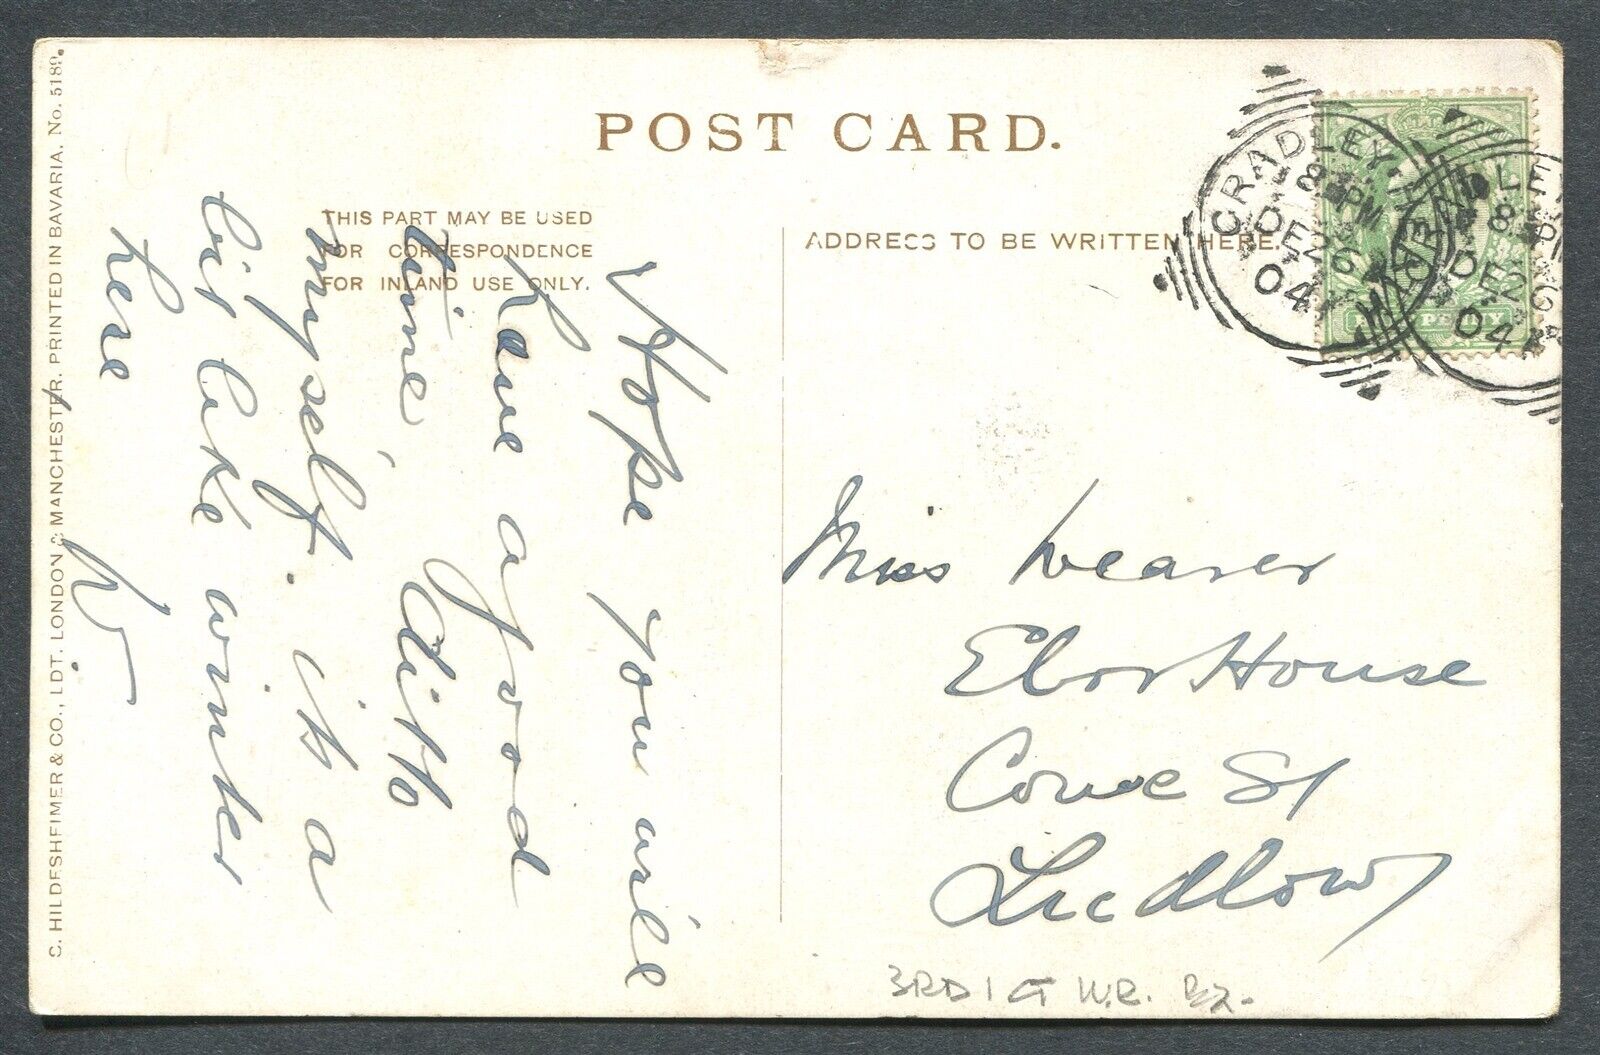 POST CARD.
THIS PART MAY BE USED
FOR CORRESPONDENCE
FOR INLAND USE ONLY.
ADDRESS TO BE WRITTEN HERE.
S. HILDESHEIMER & CO., LDT. LONDON & MANCHESTER. PRINTED IN BAVARIA. No. 5189.
CRADLEY
8 PM
DE 26
04
8 P
DE 26
04
PENNY
Hope you will
have a good
time, ditto
myself. its a
bit like winter
here
W
Miss Weaver
Ebor House
Corve St
Ludlow
3RD